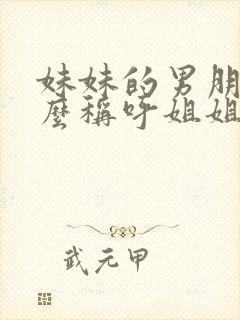 妹妹的男朋
麼稱呼姐姐
武元甲